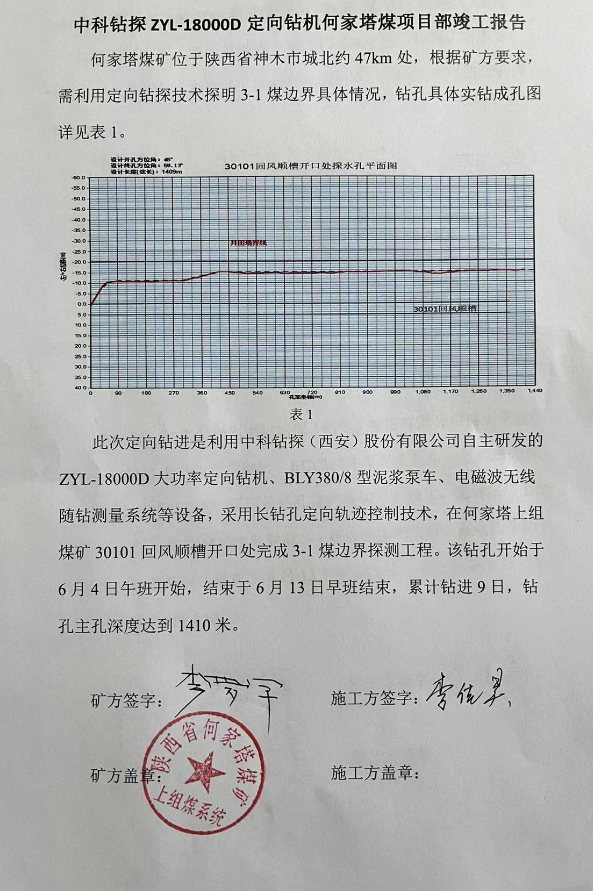 中科钻探 ZYL-18000D 定向钻机何家塔煤项目部竣工报告
何家塔煤矿位于陕西省神木市城北约 47km 处，根据矿方要求，
需利用定向钻探技术探明 3-1 煤边界具体情况，钻孔具体实钻成孔图
详见表 1。
设计开孔方位角：45°
设计终孔方位角：59.13°
设计长度(弦长)：1409m
30101回风顺槽开口处探水孔平面图
-60.0
-55.0
-50.0
-45.0
-40.0
-35.0
-30.0
-25.0
-20.0
-15.0
-10.0
-5.0
0.0
5.0
10.0
15.0
20.0
25.0
30.0
35.0
40.0
井田境界线
30101回风顺槽
0 90 180 270 360 450 540 630 720 810 900 990 1,080 1,170 1,260 1,350 1,440
表 1
此次定向钻进是利用中科钻探（西安）股份有限公司自主研发的
ZYL-18000D 大功率定向钻机、BLY380/8 型泥浆泵车、电磁波无线
随钻测量系统等设备，采用长钻孔定向轨迹控制技术，在何家塔上组
煤矿 30101 回风顺槽开口处完成 3-1 煤边界探测工程。该钻孔开始于
6 月 4 日午班开始，结束于 6 月 13 日早班结束，累计钻进 9 日，钻
孔主孔深度达到 1410 米。
矿方签字： 施工方签字：
矿方盖章： 施工方盖章：
陕西省何家塔煤矿
上组煤系统